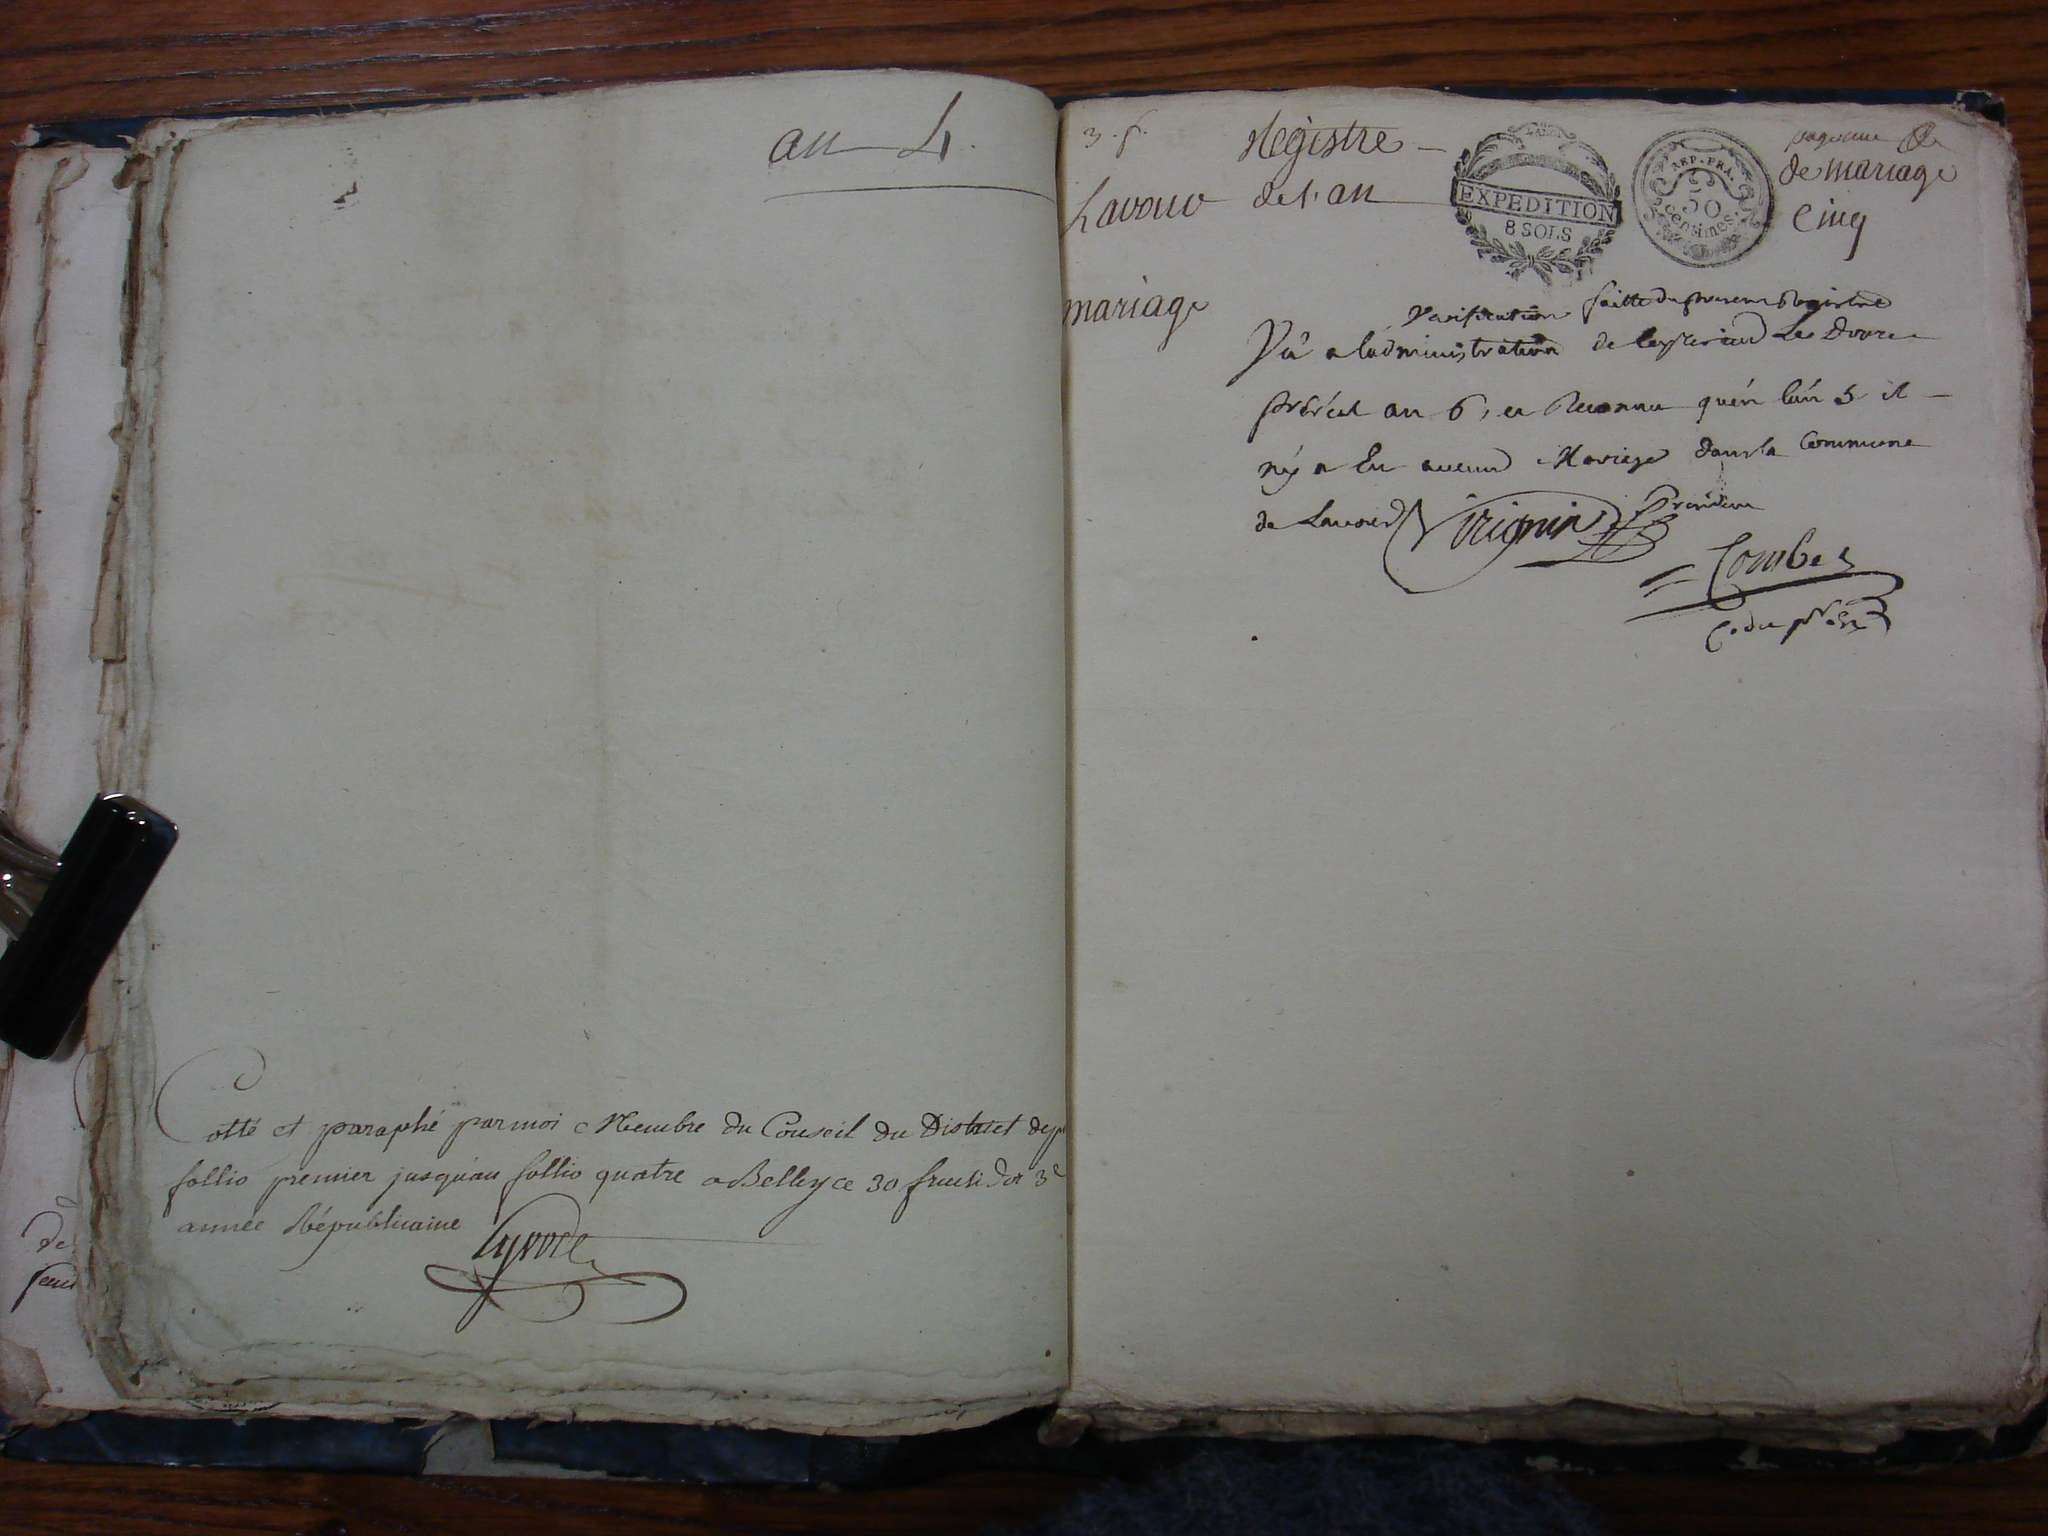 an 4.
Cotté et paraphé par moi Membre du Conseil du District depui
follio premier jusqu'au follio quatre a Belley ce 30 fructidor 3e
année Républicaine
de
3. f.
Régistre de mariage
Lavour de l'an cinq
EXPEDITION
8 SOLS
REP. FRA.
50
centimes.
mariage
Verification faitte du present Registre
Vu a ladministration de Ceyzerieu Le Douze
an 6, et Reconnu quen lan 5 il
ny a Eu aucun Mariage dans la Commune
de Lavour Virignin President
Combet